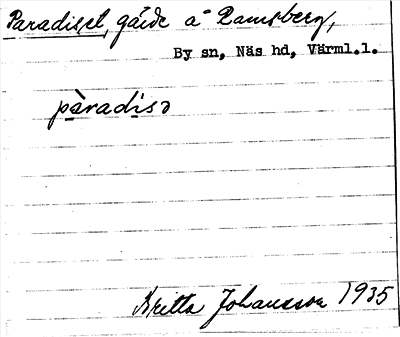 Paradiset, gärde å Ramsberg,
By sn, Näs hd, Värml.l.
pàradisɔ
Britta Johansson 1935